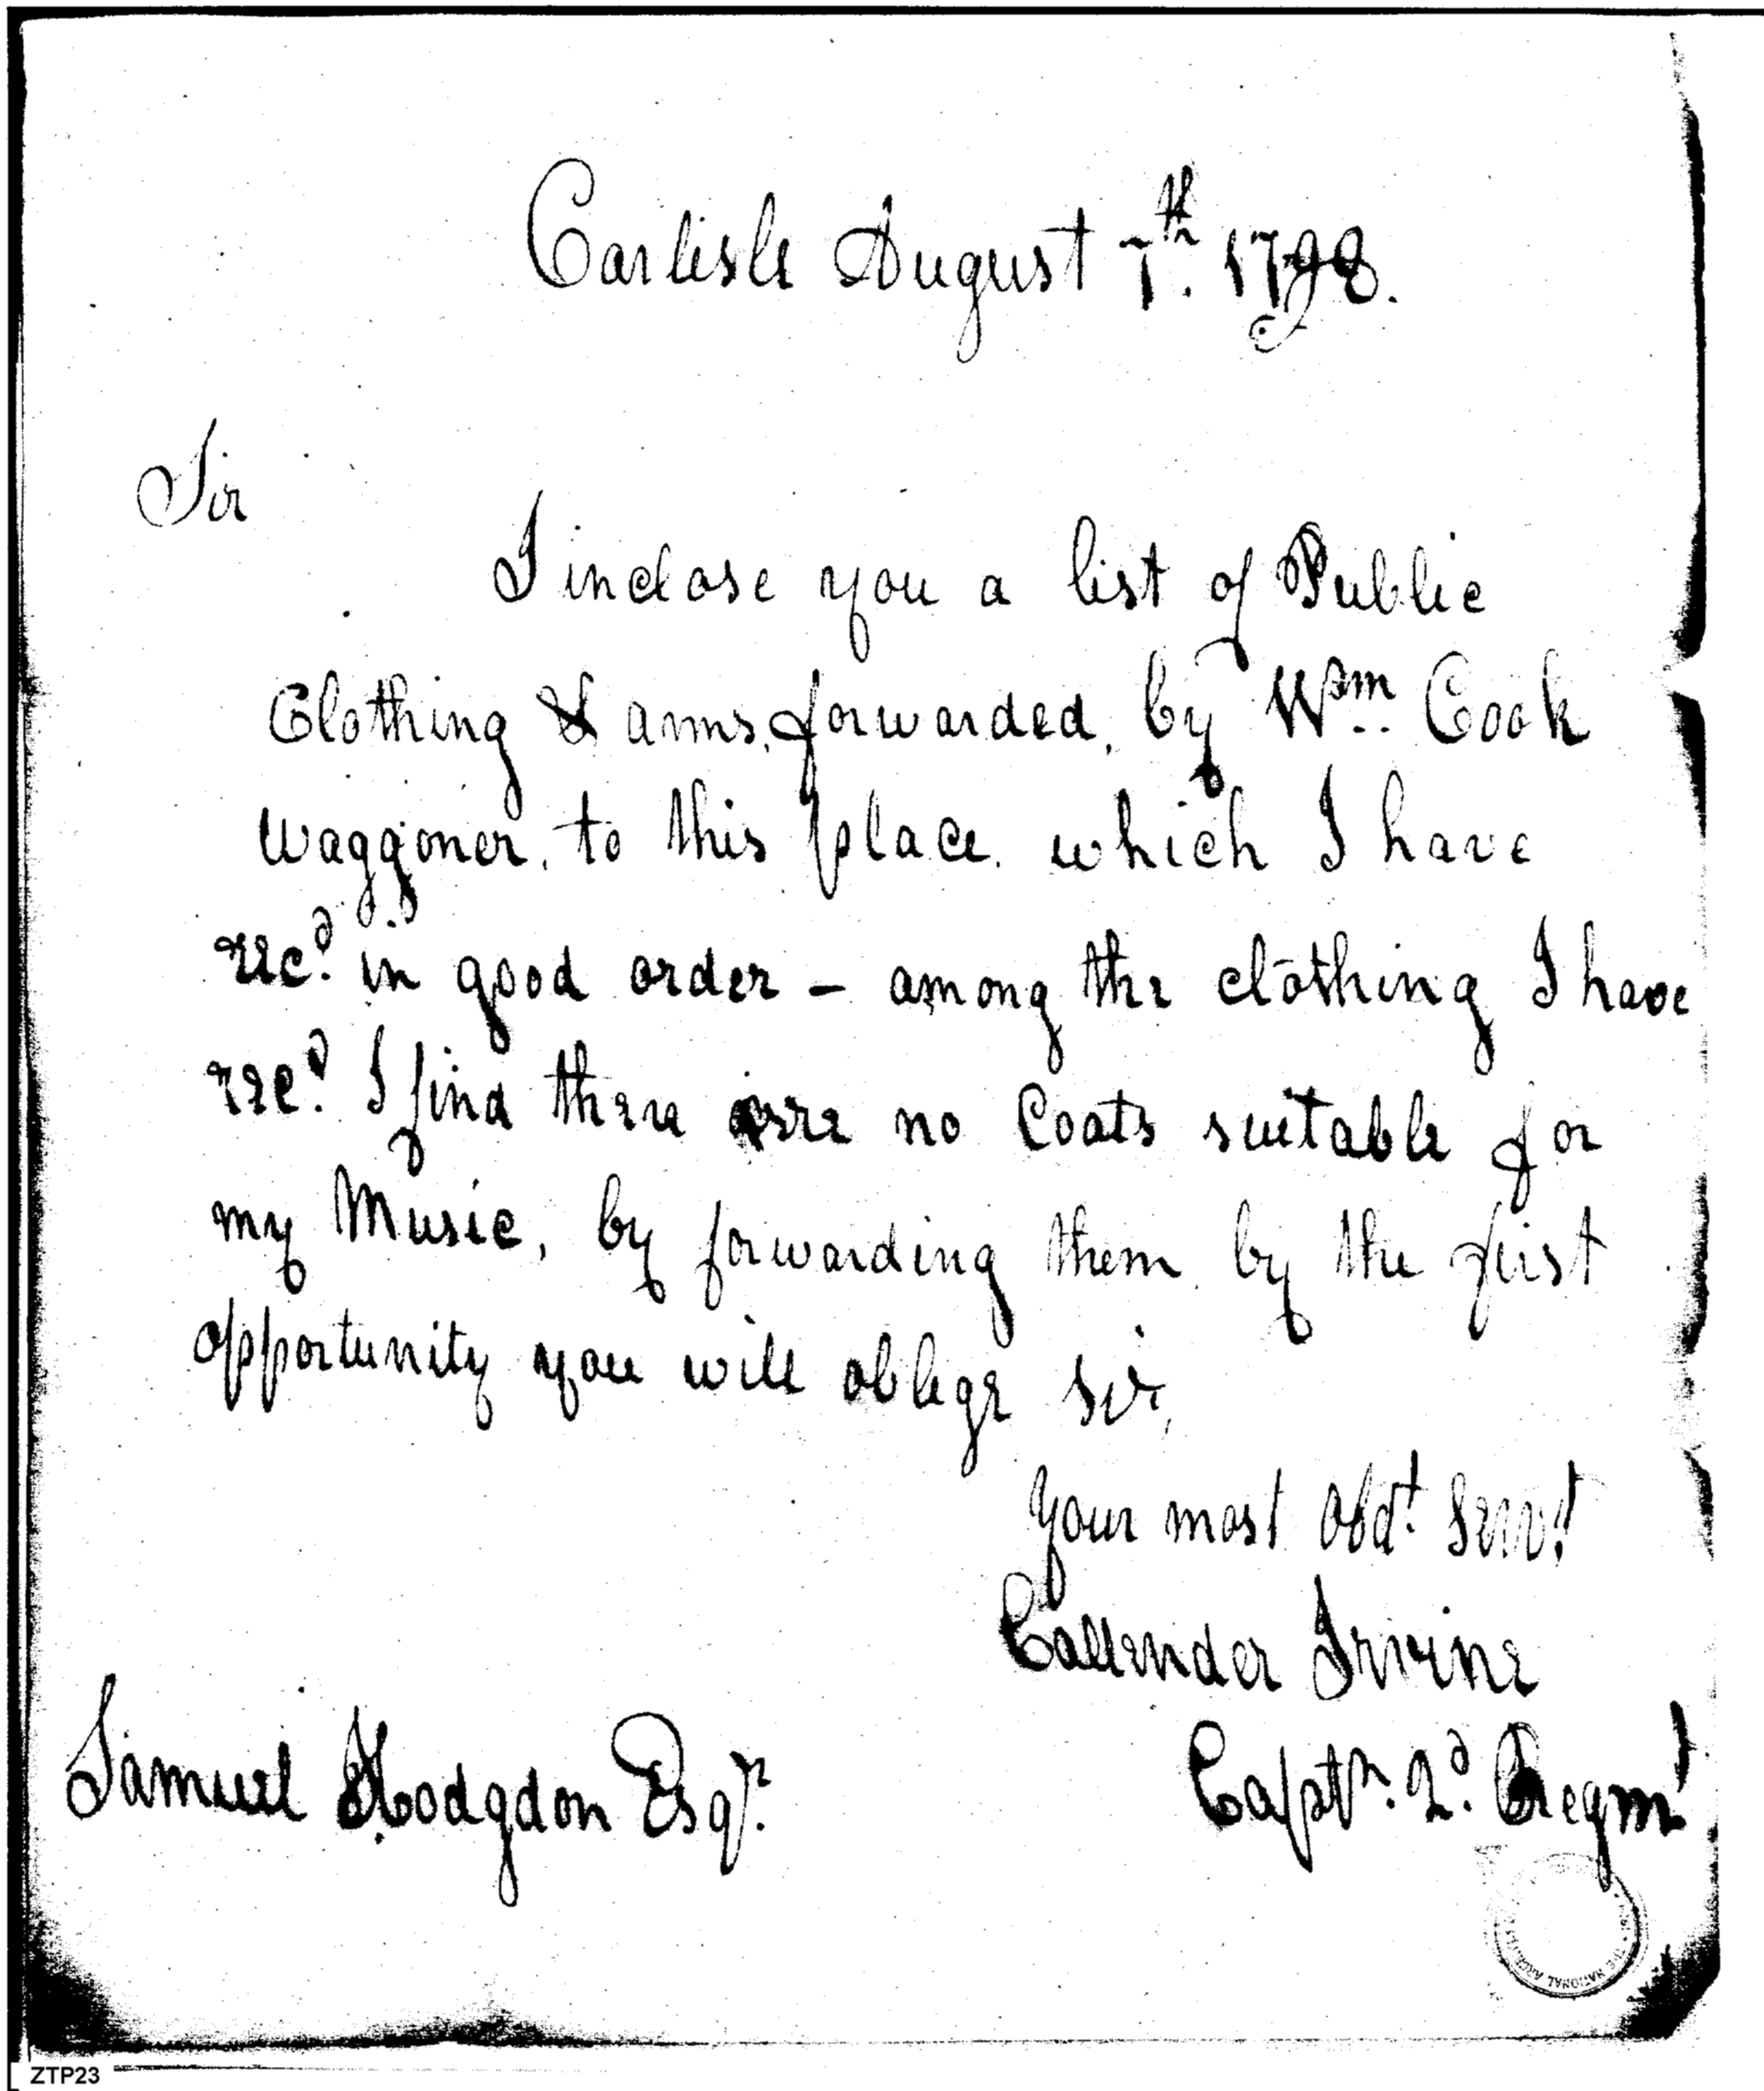 Carlisle August 7th. 1798.
Sir
I inclose you a list of Public
Clothing & arms, forwarded, by Wm. Cook
Waggoner, to this place. which I have
recd. in good order – among the clothing I have
recd. I find there are no Coats suitable for
my Music, by forwarding them by the first
opportunity you will oblige sir,
Your most obdt. Servt.
Callender Irvine
Captn. 2d. Regmt
Samuel Hodgdon Esqr.
ZTP23